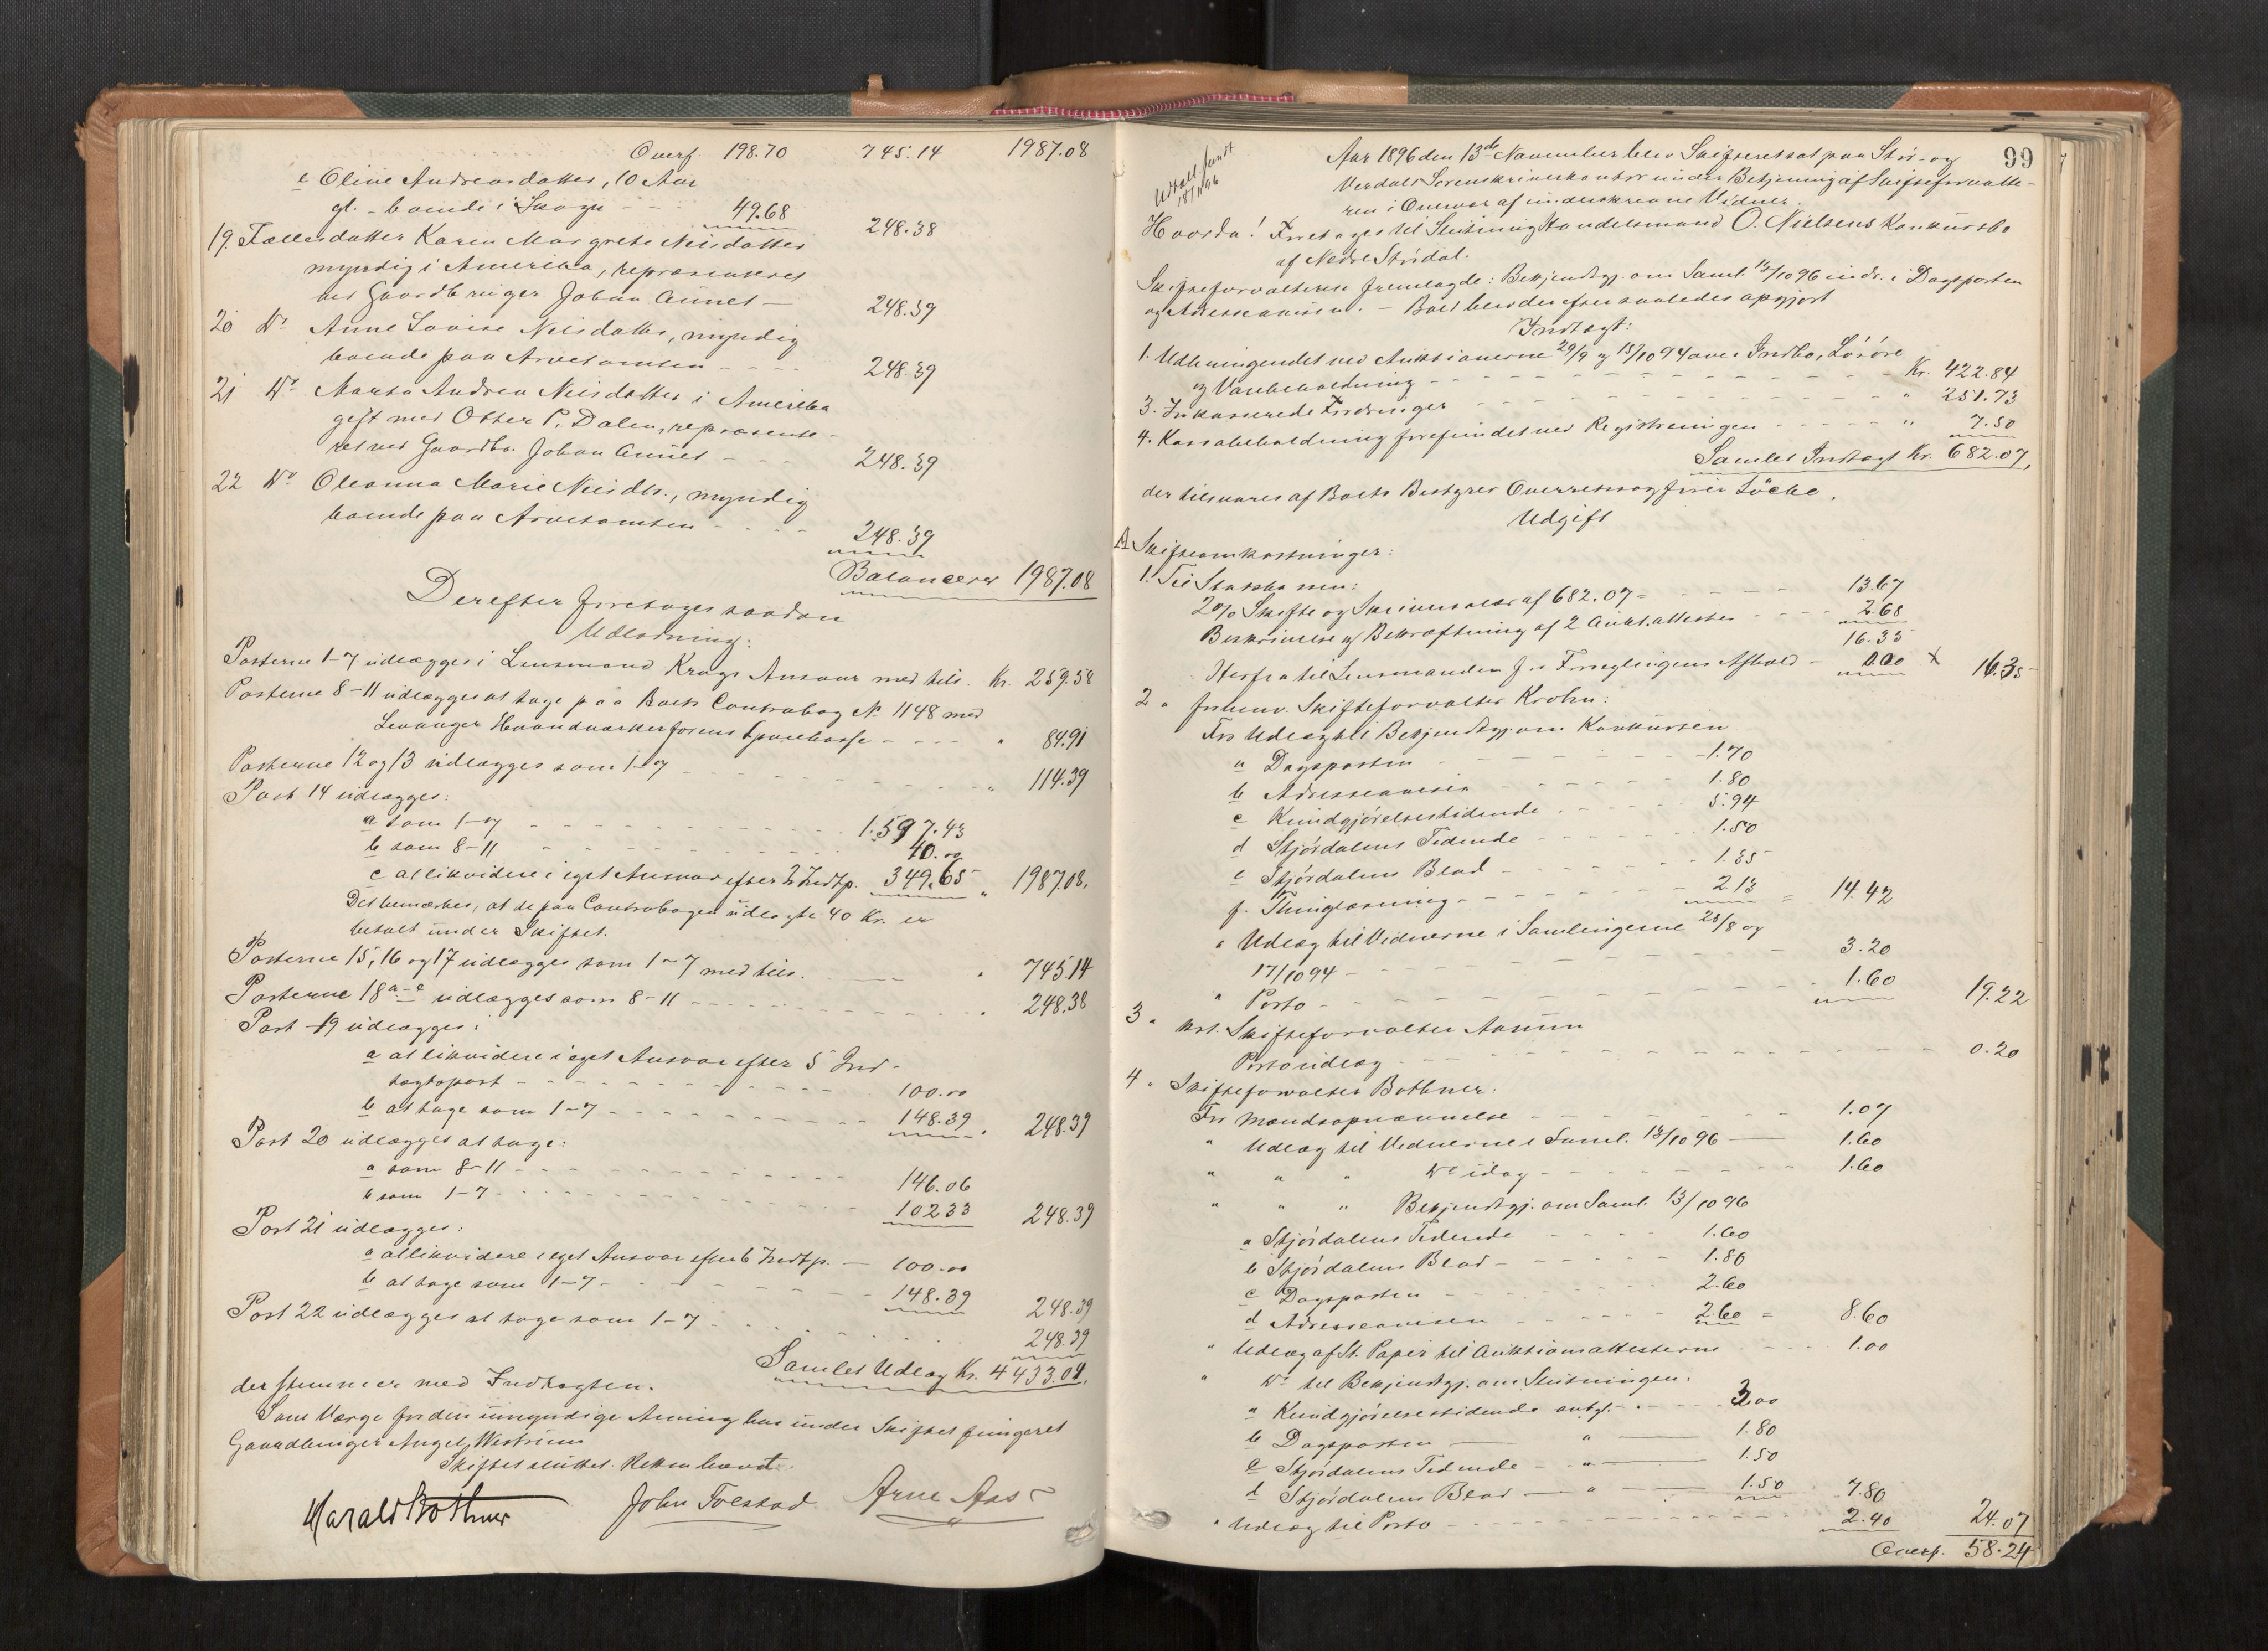 Overf. 198.70 745.14 1987.08
e Oline Andreasdatter, 10 Aar
gl. - boende i Skogn - - 49.68 248.38
19. Fællesdatter Karen Margrete Neisdatter
myndig i Amerika, repræsenteret
ved Gaardbruger Johan Aunet - 248.39
20 Do Anne Lovise Nilsdatter, myndig
boende paa Arvetomten - - - - 248.39
21 Do Marta Andrea Neisdatter i Amerika
gift med Otter P. Dalen, repræsente-
ret ved Gaardbr. Johan Aunet - - - 248.39
22 Do Oleanna Marie Neisdtr., myndig
boende paa Arvetomten - - - - 248.39
Balancerer 1987.08
Derefter foretoges saadan
Udlodning:
Posterne 1-7 udlægges i Lensmand Krogs Ansvar med tils. Kr. 259.58
Posterne 8-11 udlægges at tage paa Boets Contrabog No 1148 med
Levanger Haandværkerforens Sparekasse - - - - " 84.91
Posterne 12 og 13 udlægges som 1-7 - - - - " 114.39
Post 14 udlægges:
a som 1-7 - - - - 1.597.43
b som 8-11 - - - - 40.00
c at likvidere i eget Ansvar efter 2 Indtp. 349.65 " 1987.08.
Det bemærkes, at de paa Contrabogen udlagte 40 Kr. er
betalt under Skiftet.
Posterne 15, 16 og 17 udlægges som 1-7 med tils. - - " 745.14
Posterne 18 a-e udlægges som 8-11 - - - - " 248.38
Post 19 udlægges:
a at likvidere i eget Ansvar efter 5 Ind-
tægtspost - - - - 100.00
b at tage som 1-7 - - - - 148.39 " 248.39
Post 20 udlægges at tage:
a som 8-11 - - - - 146.06
b som 1-7 - - - - 102.33 248.39
Post 21 udlægges:
a at likvidere i eget Ansvar efter 6 Indtp. - 100.00
b at tage som 1-7 - - - - 148.39 248.39
Post 22 udlægges at tage som 1-7 - - - - 248.39
Samlet Udlæg Kr. 4433.04.
der stemmer med Indtægten.
Som Værge for den umyndige Arving har under Skiftet fungeret
Gaardbruger Westrum
Skiftet sluttet. Retten hævet.
Harald Bothner John Tolstad Arne Aas
99
Udtall sendt
18/11 96
Aar 1896 den 13de November blev Skifteret sat paa Stør- og
Verdals Sorenskriverkontor under Betjening af Skifteforvalte-
ren i Overvær af underskrevne Vidner.
Hvorda! Foretoges til Slutning Handelsmand O. Nielsens Konkursbo
af Nedre Stjørdal.
Skifteforvalteren fremlagde: Bekjendtgj. om Saml. 13/10 96 indr. i Dagsposten
og Adresseavisen. - Boet blev derefter saaledes opgjort
Indtægt:
1. Udbringendet ved Auktionerne 29/9 og 15/10 94 over Indbo, Løsøre
og Varebeholdning - - - - Kr. 422.84
3. Inkasserede Fordringer - - - - " 251.73
4. Kassabeholdning forefundet ved Registreringen - - - - " 7.50
Samlet Indtægt Kr. 682.07,
der tilsvares af Boets Bestyrer Overretssagfører Løcke.
Udgift
A Skifteomkostninger:
1. Til Statskassen:
2% Skifte og Skriversalær af 682.07 - - - - 13.67
Beskrivelse og Bekræftning af 2 Aukt.attester - - - - 2.68
16.35
Herfra til Lensmanden for Forseglingens Afhold - 0.00 X 16.35
2 " forhenv. Skifteforvalter Krohn:
For Udlæg til Bekjendtgj. om Konkursen
a Dagsposten - - - - 1.70
b Adresseavisen - - - - 1.80
c Kundgjørelsestidende - - - - 5.94
d Stjørdalens Tidende - - - - 1.50
e Stjørdalens Blad - - - - 1.35
f. Thinglæsning - - - - 2.13 = 14.42
" Udlæg til Vidnerne i Samlingerne 28/8 og
17/10 94 - - - - 3.20
" Porto - - - - 1.60 19.22
3 " kst. Skifteforvalter Aamun
Portoudlæg - - - - 0.20
4 " Skifteforvalter Bothner:
For Mændsopnævnelse - - - - 1.07
" Udlæg til Vidnerne i Saml. 13/10 96 - 1.60
" " " Do idag - - - - 1.60
" " " Bekjendtgj. om Saml. 13/10 96
a Stjørdalens Tidende - - - - 1.60
b Stjørdalens Blad - - - - 1.80
c Dagsposten - - - - 2.60
d Adresseavisen - - - - 2.60 = 8.60
" Udlæg af St. Papir til Auktionsattesterne - - - - 1.00
" Do til Bekjendtgj. om Slutningen.
a Kundgjørelsestidende antgl. - - 3.00
b Dagsposten - " - 1.80
c Stjørdalens Tidende - " - 1.50
d Stjørdalens Blad - " - 1.50 7.80
" Udlæg til Porto - - - - 2.40 24.07
Overf. 58.24